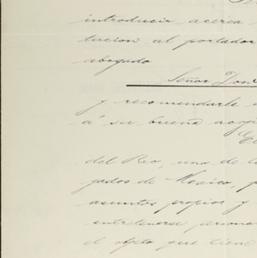 introducir acerca
tucion al portador
abogado
Señor Don
y recomendarle
á su buena
del Rio, uno de l
gados de Mexico, p
asuntos propios y
entretenerse
el objeto que tiene